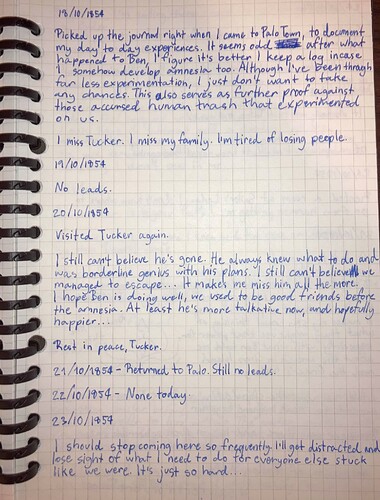 18/10/1854
Picked up the journal right when I came to Palo Town, to document
my day to day experiences. It seems odd after what
happened to Ben, I figure it's better I keep a log incase
I somehow develop amnesia too. Although I've been through
far less experimentation, I just don't want to take
any chances. This also serves as further proof against
those accursed human trash that experimented
on us.
I miss Tucker. I miss my family. I'm tired of losing people.
19/10/1854
No leads.
20/10/1854
Visited Tucker again.
I still can't believe he's gone. He always knew what to do and
was borderline genius with his plans. I still can't believe we
managed to escape... It makes me miss him all the more.
I hope Ben is doing well, we used to be good friends before
the amnesia. At least he's more talkative now, and hopefully
happier...
Rest in peace, Tucker.
21/10/1854 - Returned to Palo. Still no leads.
22/10/1854 - None today.
23/10/1854
I should stop coming here so frequently. I'll get distracted and
lose sight of what I need to do for everyone else stuck
like we were. It's just so hard...